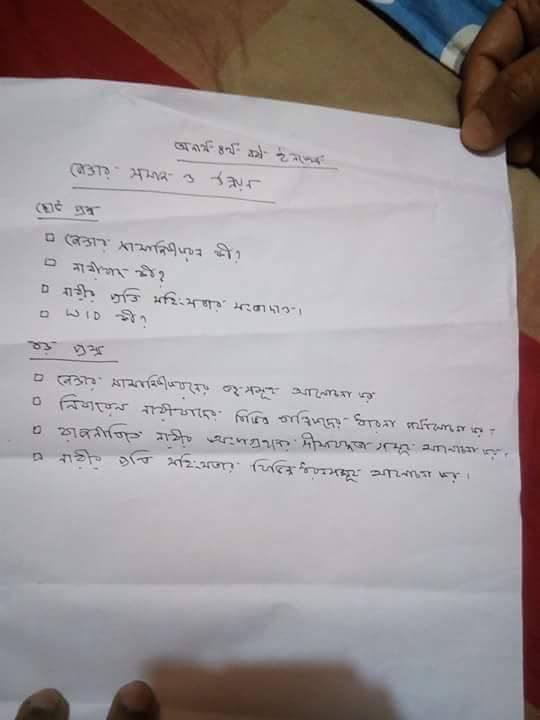 অনার্স ৪র্থ বর্ষ ইনকোর্স
জেন্ডার সমাজ ও উন্নয়ন
ছোট প্রশ্ন
□ জেন্ডার সামাজিকীকরণ কী?
□ নারীবাদ কী?
□ নারীর প্রতি সহিংসতার সংজ্ঞা দাও।
□ WID কী?
বড় প্রশ্ন
□ জেন্ডার সামাজিকীকরণের আলোচনা কর
□ লিবারেল নারীবাদের বিভিন্ন তাত্ত্বিকদের ধারনা পর্যালোচনা কর।
□ রাজনীতিতে নারীর অংশগ্রহনের সীমাবদ্ধতা সমূহ আলোচনা কর।
□ নারীর প্রতি সহিংসতার বিভিন্ন ধরনসমূহ আলোচনা কর।